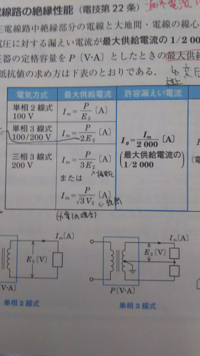 電線路の絶縁性能 (電技第22条)
中部分の電線と大地間・電線の線心
電圧に対する漏えい電流が最大供給電流の1/20
圧器の定格容量をP(V·A)としたときの最大供給
抵抗値の求め方は下表のとおりである。
電気方式 最大供給電流 許容漏えい電流
単相2線式
100 V
Im = P/E2 (A)
単相3線式
100/200 V
Im = P/2E2 (A)
三相3線式
200 V
Im = P/3E2 (A)
または
Im = P/√3V2 (A)
Ie = Im/2 000 (A)
最大供給電流の
1/2 000
Im(A)
E2(V)
(V·A)
単相2線式
P(V·A)
Im(A)
E2(V)
単相3線式